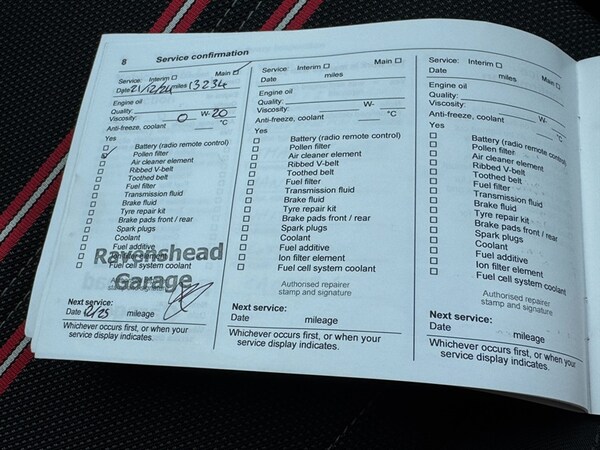 8 Service confirmation
Service: Interim ☐ Main ☐
Date 21/12/24 miles 13234
Engine oil
Quality:
Viscosity: 0 W- 20
Anti-freeze, coolant °C
Yes
☐ Battery (radio remote control)
☐ Pollen filter
☐ Air cleaner element
☐ Ribbed V-belt
☐ Toothed belt
☐ Fuel filter
☐ Transmission fluid
☐ Brake fluid
☐ Tyre repair kit
☐ Brake pads front / rear
☐ Spark plugs
☐ Coolant
☐ Fuel additive
☐ Ion filter element
☐ Fuel cell system coolant
Ravenshead
Garage
Next service:
Date 12/25 mileage
Whichever occurs first, or when your
service display indicates.
Service: Interim ☐ Main ☐
Date miles
Engine oil
Quality:
Viscosity: W-
Anti-freeze, coolant °C
Yes
☐ Battery (radio remote control)
☐ Pollen filter
☐ Air cleaner element
☐ Ribbed V-belt
☐ Toothed belt
☐ Fuel filter
☐ Transmission fluid
☐ Brake fluid
☐ Tyre repair kit
☐ Brake pads front / rear
☐ Spark plugs
☐ Coolant
☐ Fuel additive
☐ Ion filter element
☐ Fuel cell system coolant
Authorised repairer
stamp and signature
Next service:
Date mileage
Whichever occurs first, or when your
service display indicates.
Service: Interim ☐ Main ☐
Date miles
Engine oil
Quality:
Viscosity: W-
Anti-freeze, coolant °C
Yes
☐ Battery (radio remote control)
☐ Pollen filter
☐ Air cleaner element
☐ Ribbed V-belt
☐ Toothed belt
☐ Fuel filter
☐ Transmission fluid
☐ Brake fluid
☐ Tyre repair kit
☐ Brake pads front / rear
☐ Spark plugs
☐ Coolant
☐ Fuel additive
☐ Ion filter element
☐ Fuel cell system coolant
Authorised repairer
stamp and signature
Next service:
Date mileage
Whichever occurs first, or when your
service display indicates.